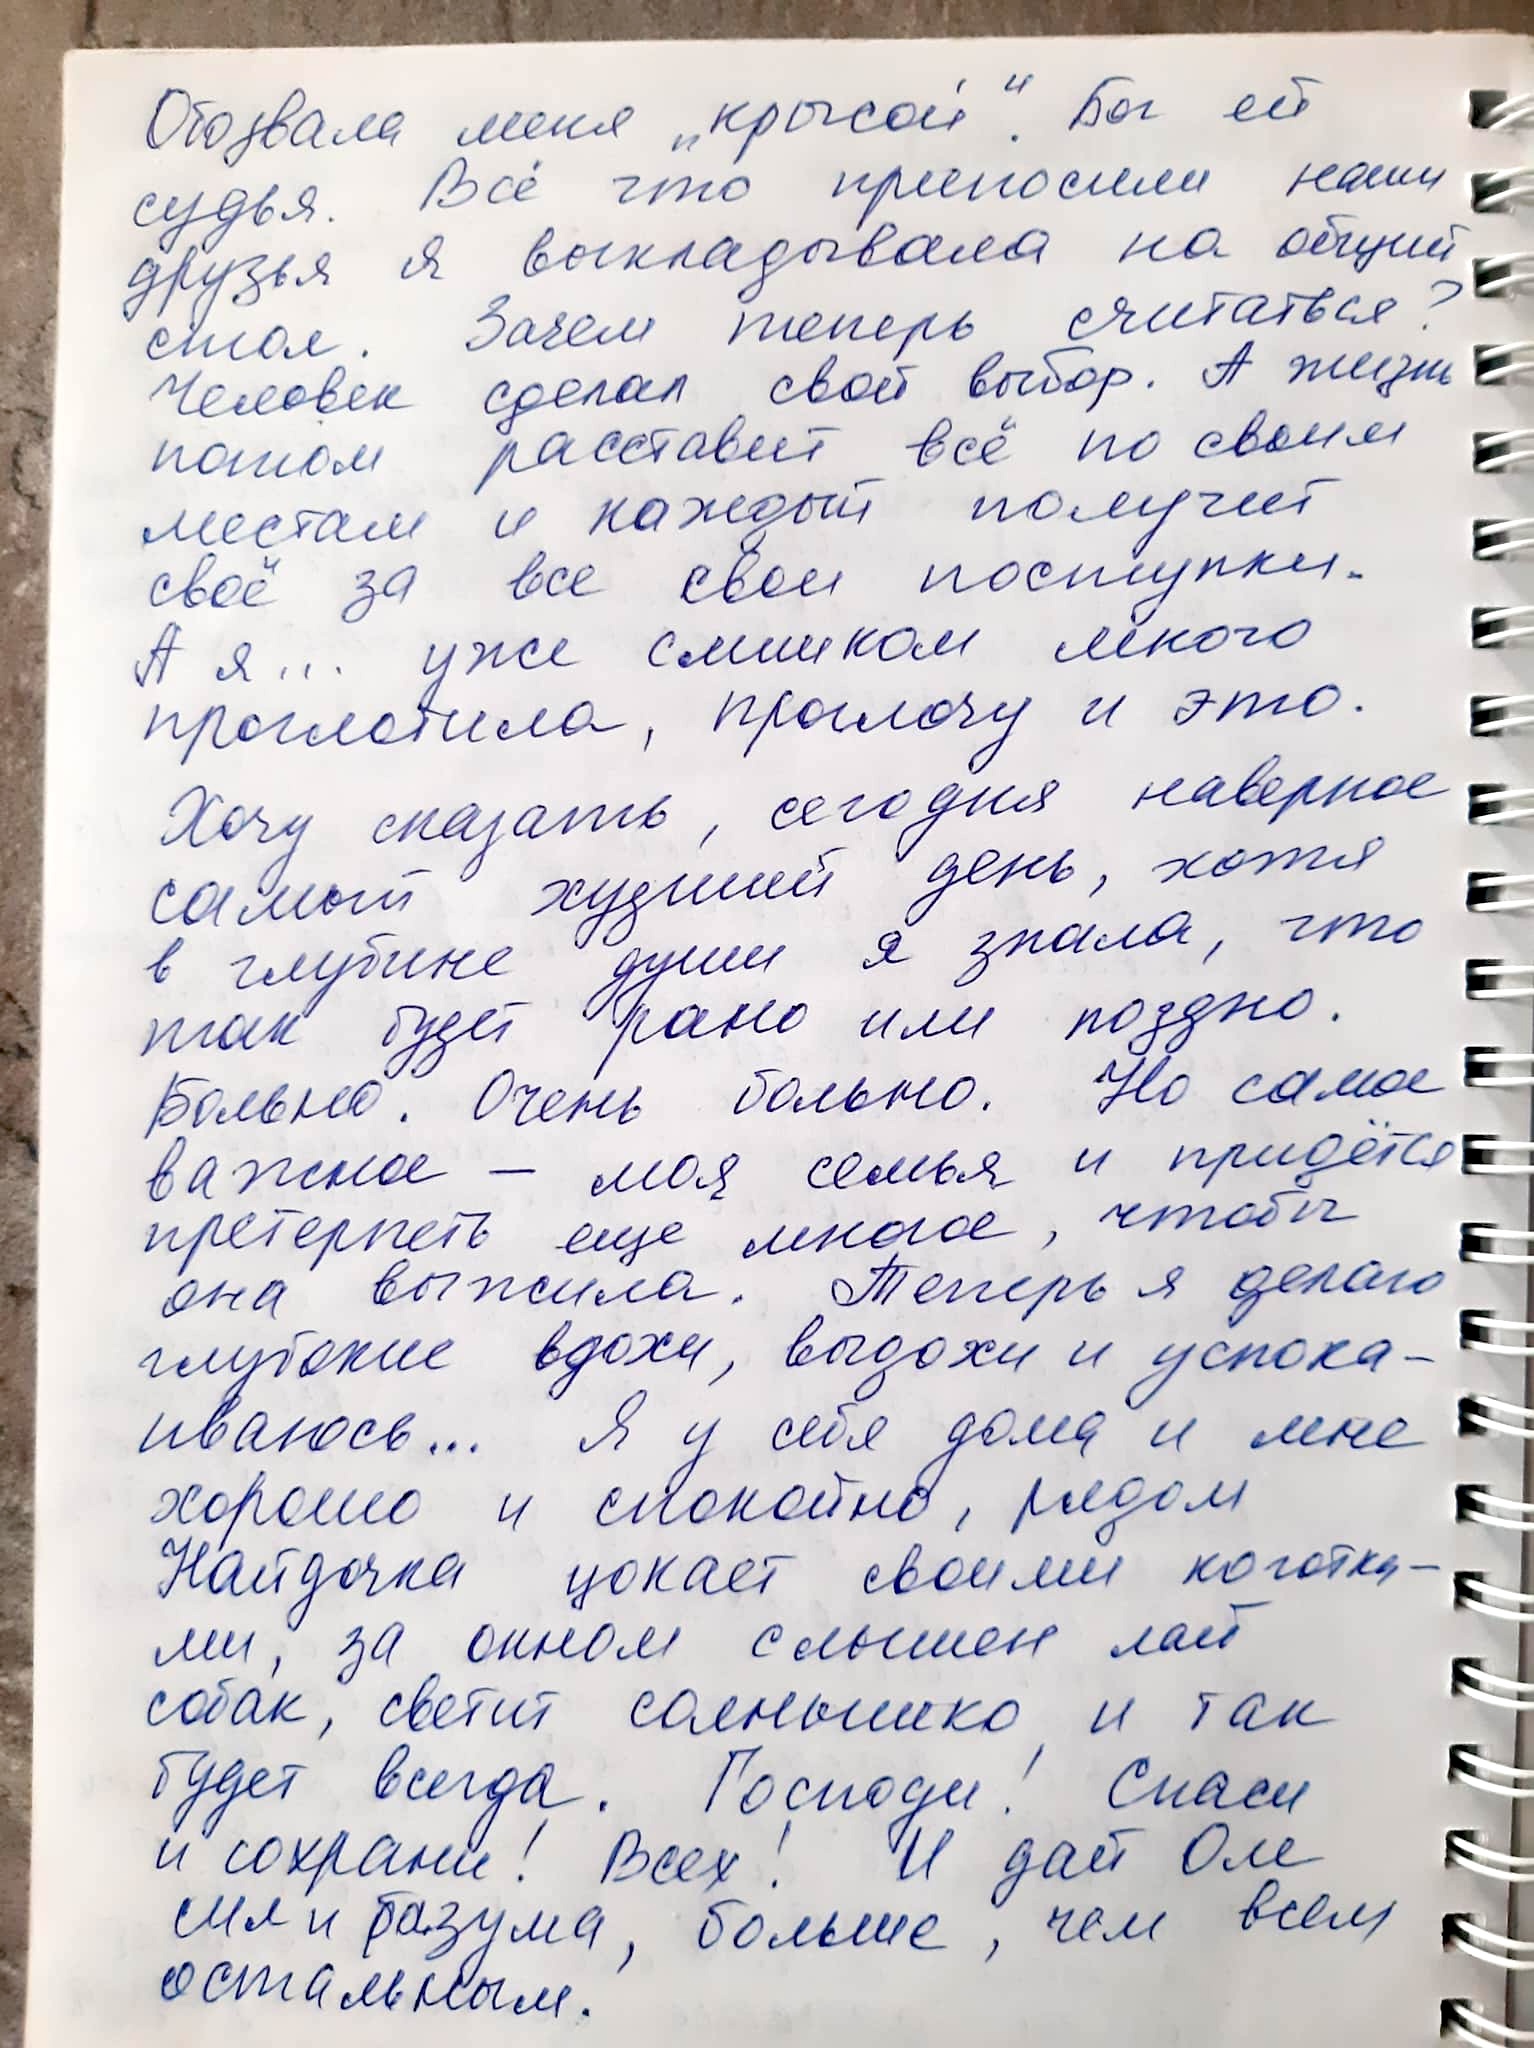 Обозвала меня „крысой“. Бог ей
судья. Всё что приносили наши
друзья я выкладывала на общий
стол. Зачем теперь считаться?
Человек сделал свой выбор. А жизнь
потом расставит всё по своим
местам и каждый получит
своё за все свои поступки.
А я... уже слишком много
проглотила, проглочу и это.
Хочу сказать, сегодня наверное
самый худший день, хотя
в глубине души я знала, что
так будет рано или поздно.
Больно. Очень больно. Но самое
важное – моя семья и придётся
претерпеть еще многое, чтобы
она выжила. Теперь я делаю
глубокие вдохи, выдохи и успока-
иваюсь... Я у себя дома и мне
хорошо и спокойно, рядом
Найдочка цокает своими коготка-
ми, за окном слышен лай
собак, светит солнышко и так
будет всегда. Господи! Спаси
и сохрани! Всех! И дай Оле
сил и разума, больше, чем всем
остальным.